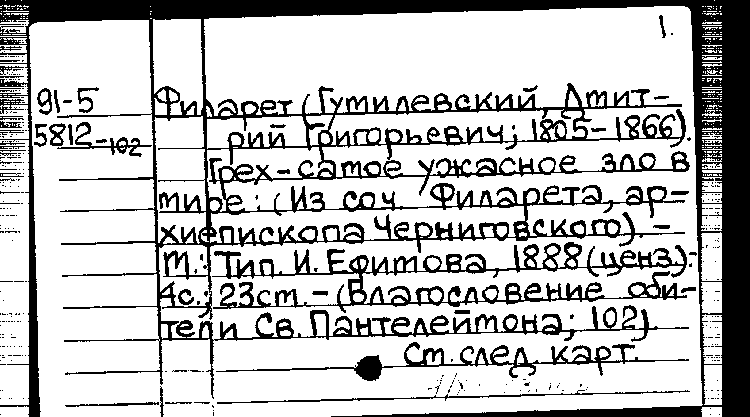 1.
91-5 Филарет (Гумилевский, Дмит-
5812-102 рий Григорьевич; 1805-1866).
Грех-самое ужасное зло в
мире: (Из соч. Филарета, ар-
хиепископа Черниговского). -
М.: Тип. И. Ефимова, 1888 (ценз.).-
4с.; 23см. - (Благословение оби-
тели Св. Пантелеймона; 102).
См. след. карт.